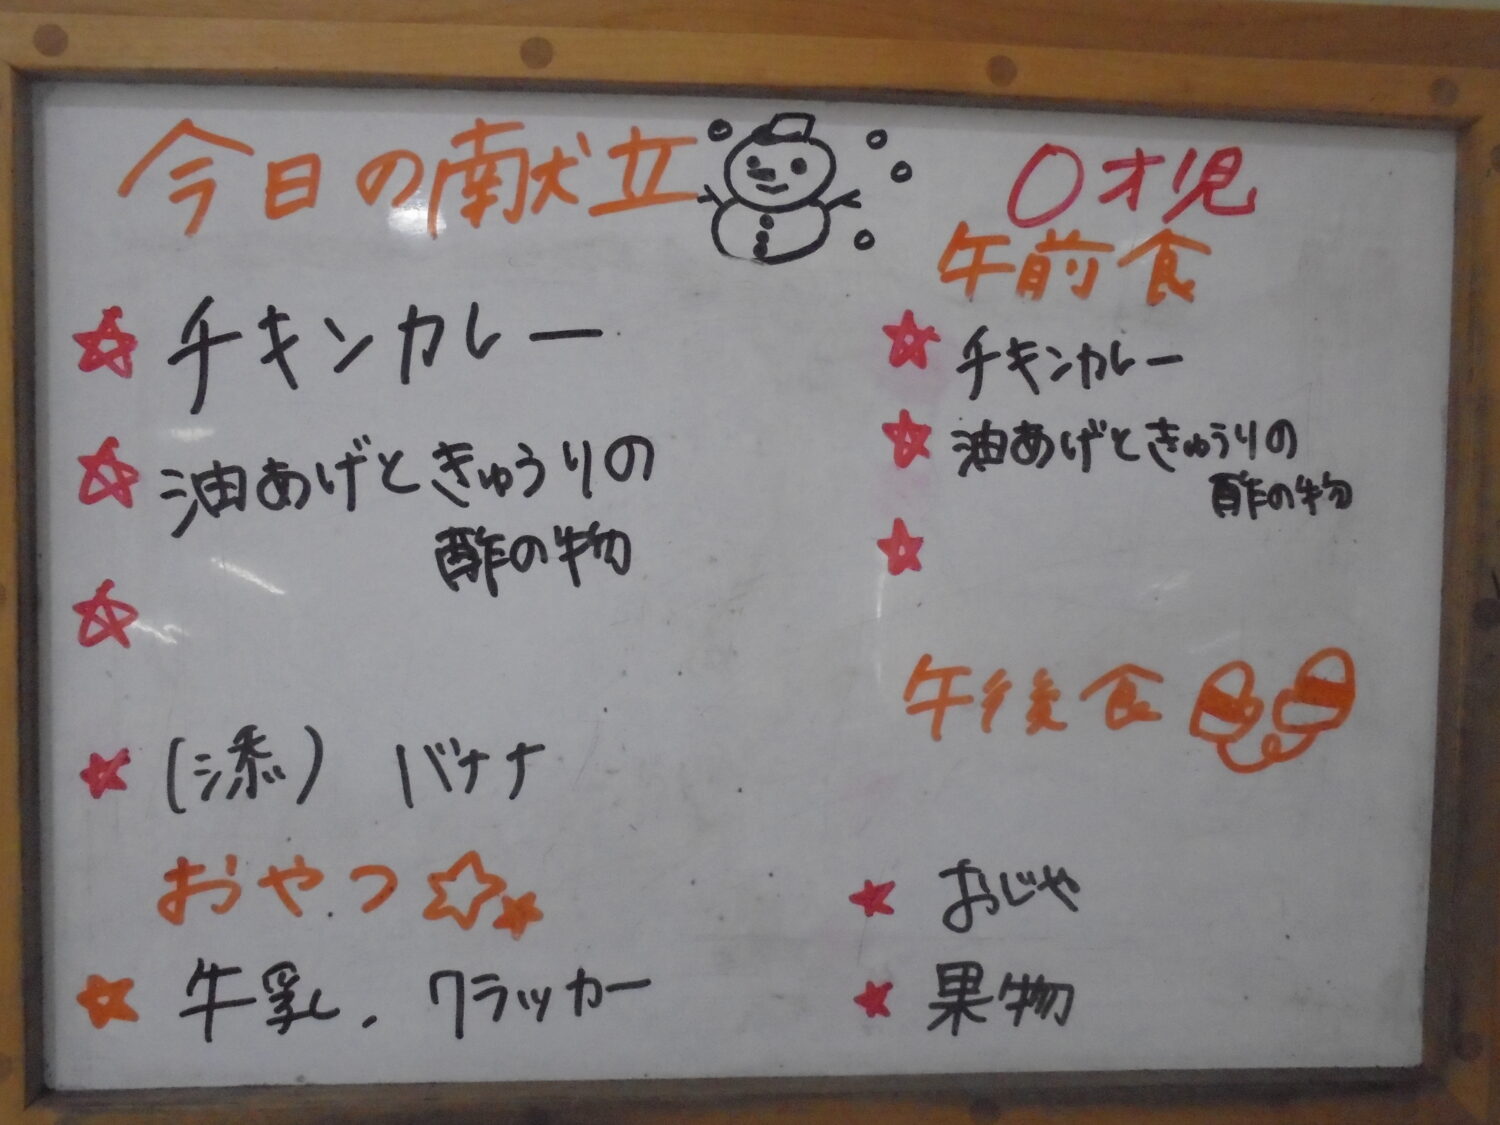 今日の献立
チキンカレー
油あげときゅうりの
酢の物
(添) バナナ
おやつ
牛乳、クラッカー
0才児
午前食
チキンカレー
油あげときゅうりの
酢の物
午後食
おじや
果物